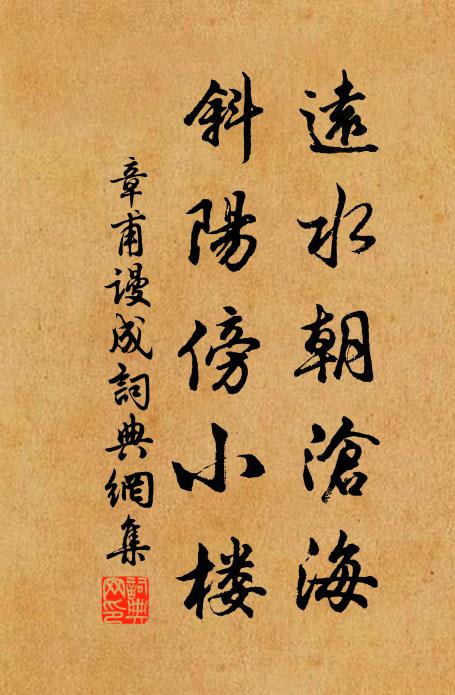 遠水朝滄海
斜陽傍小楼
章甫谩成詞典網集
詞典网印